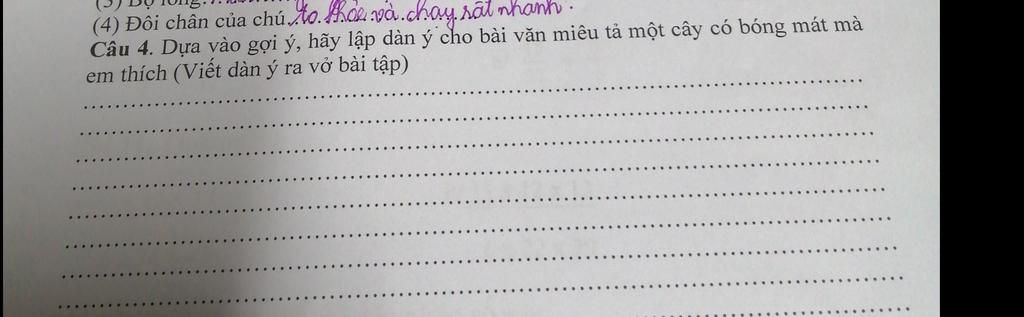 (4) Đôi chân của chú to khỏe và chạy rất nhanh.
Câu 4. Dựa vào gợi ý, hãy lập dàn ý cho bài văn miêu tả một cây có bóng mát mà
em thích (Viết dàn ý ra vở bài tập)